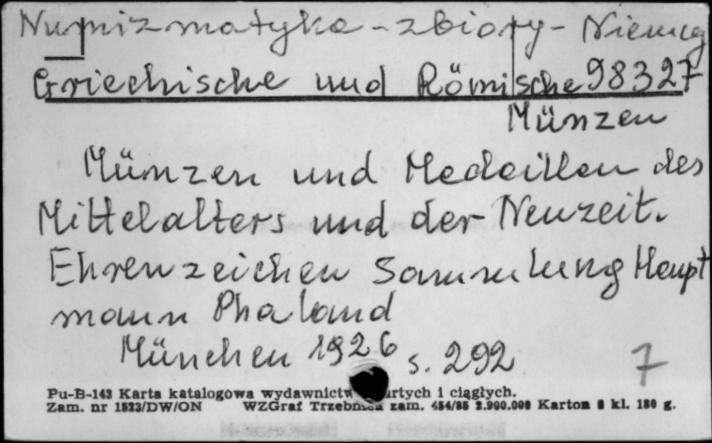 Numizmatyka - zbiory - Niemcy
Griechische und Römische 98327
Münzen
Münzen und Medaillen des
Mittelalters und der Neuzeit.
Ehrenzeichen Sammlung Haupt
mann Phaland
München 1926 s. 292
7
Pu-B-143 Karta katalogowa wydawnictw artych i ciągłych.
Zam. nr 1523/DW/ON WZGraf Trzebnica zam. 454/85 2.900.000 Karton kl. 180 g.